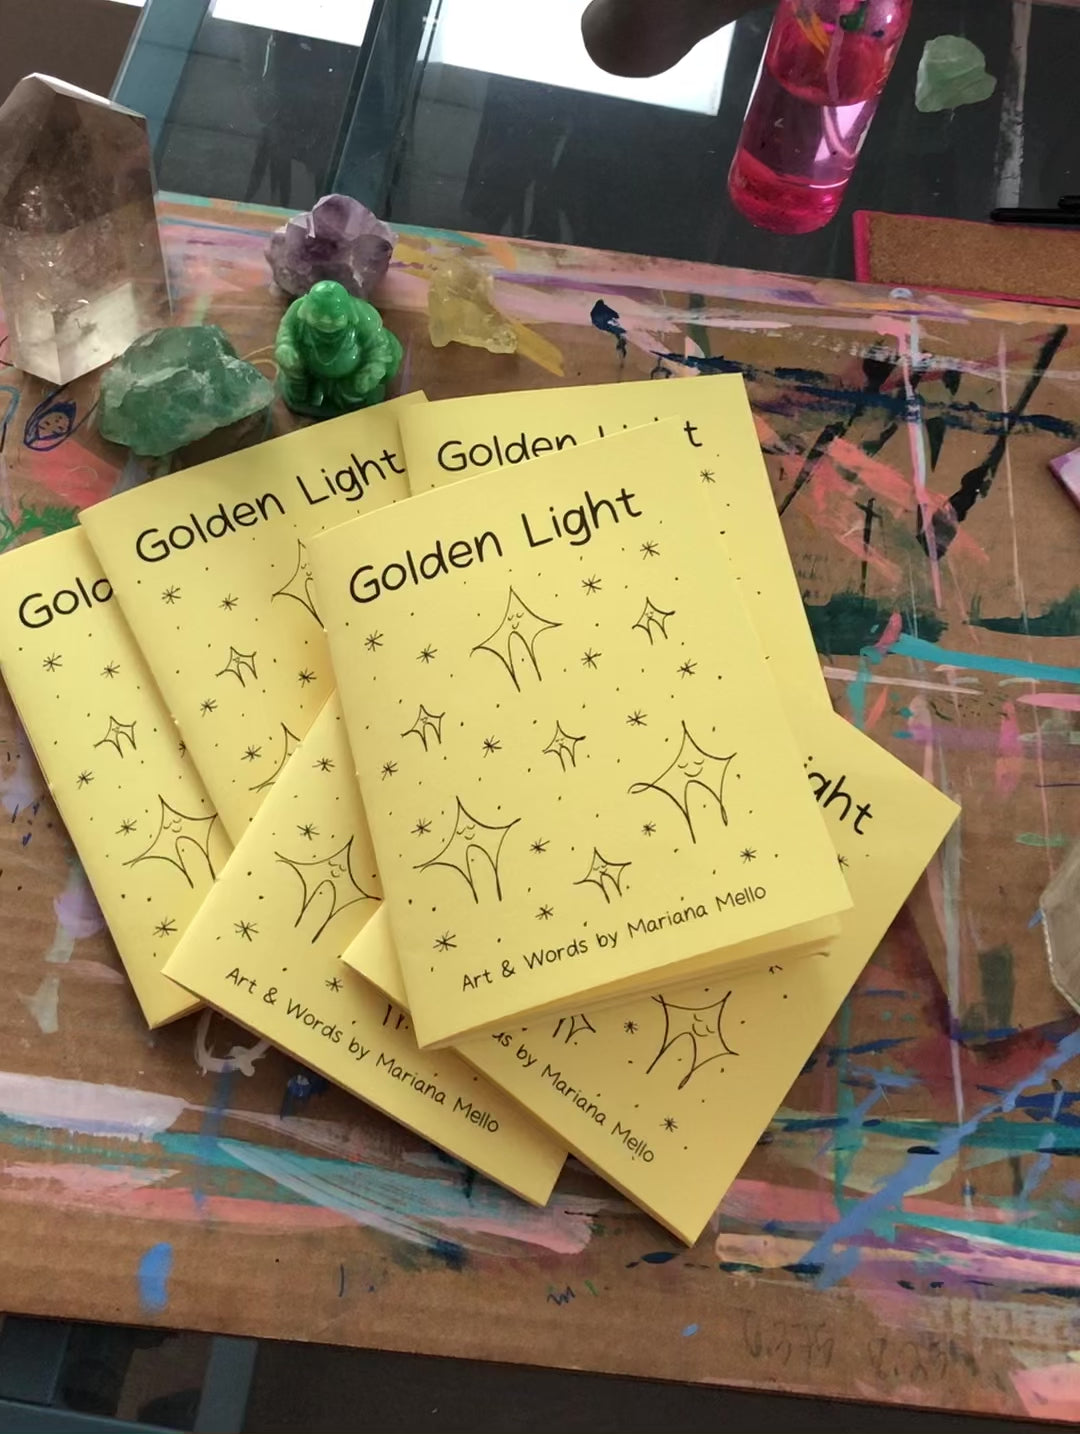 Golden Light
Golden
Gold
Golden Light
Art & Words by Mariana Mello
ght
Art & Words by Mariana Mello
by Mariana Mello